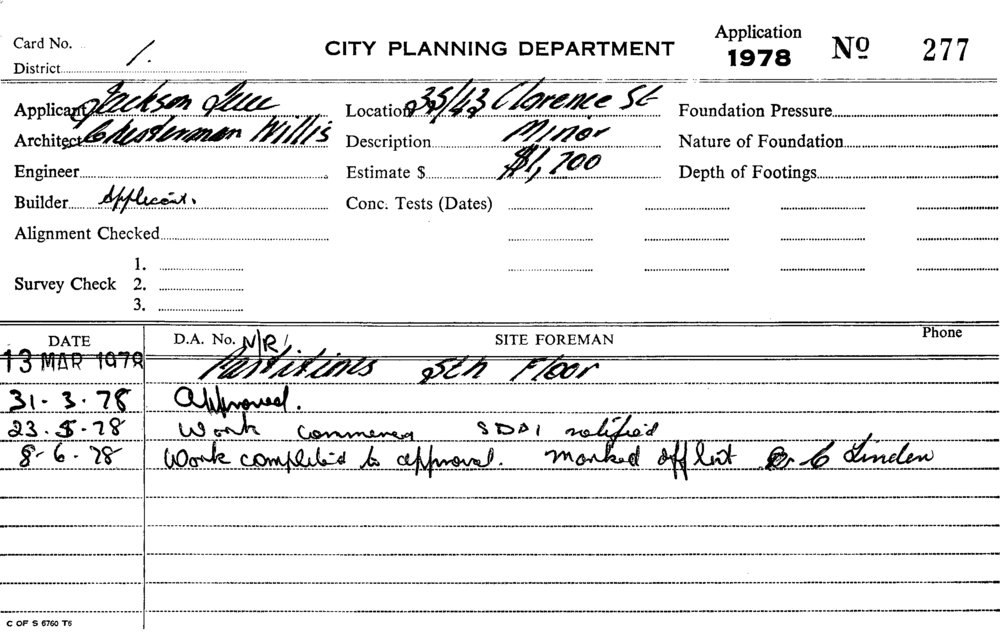 Card No. CITY PLANNING DEPARTMENT Application 1978 Nº 277
District 1.
Applicant Jackson Location 35/43 Clarence St Foundation Pressure
Architect Chesterman Willis Description Minor Nature of Foundation
Engineer Estimate $ $1,700 Depth of Footings
Builder Applicant. Conc. Tests (Dates)
Alignment Checked
1.
Survey Check 2.
3.
DATE D.A. No. N/R SITE FOREMAN Phone
13 MAR 1978 Partitions 5th Floor
31-3-78 Approved.
23-5-78 Work commenced notified
8-6-78 Work completed to approval. Marked off list C Linden
C OF S 6760 T6